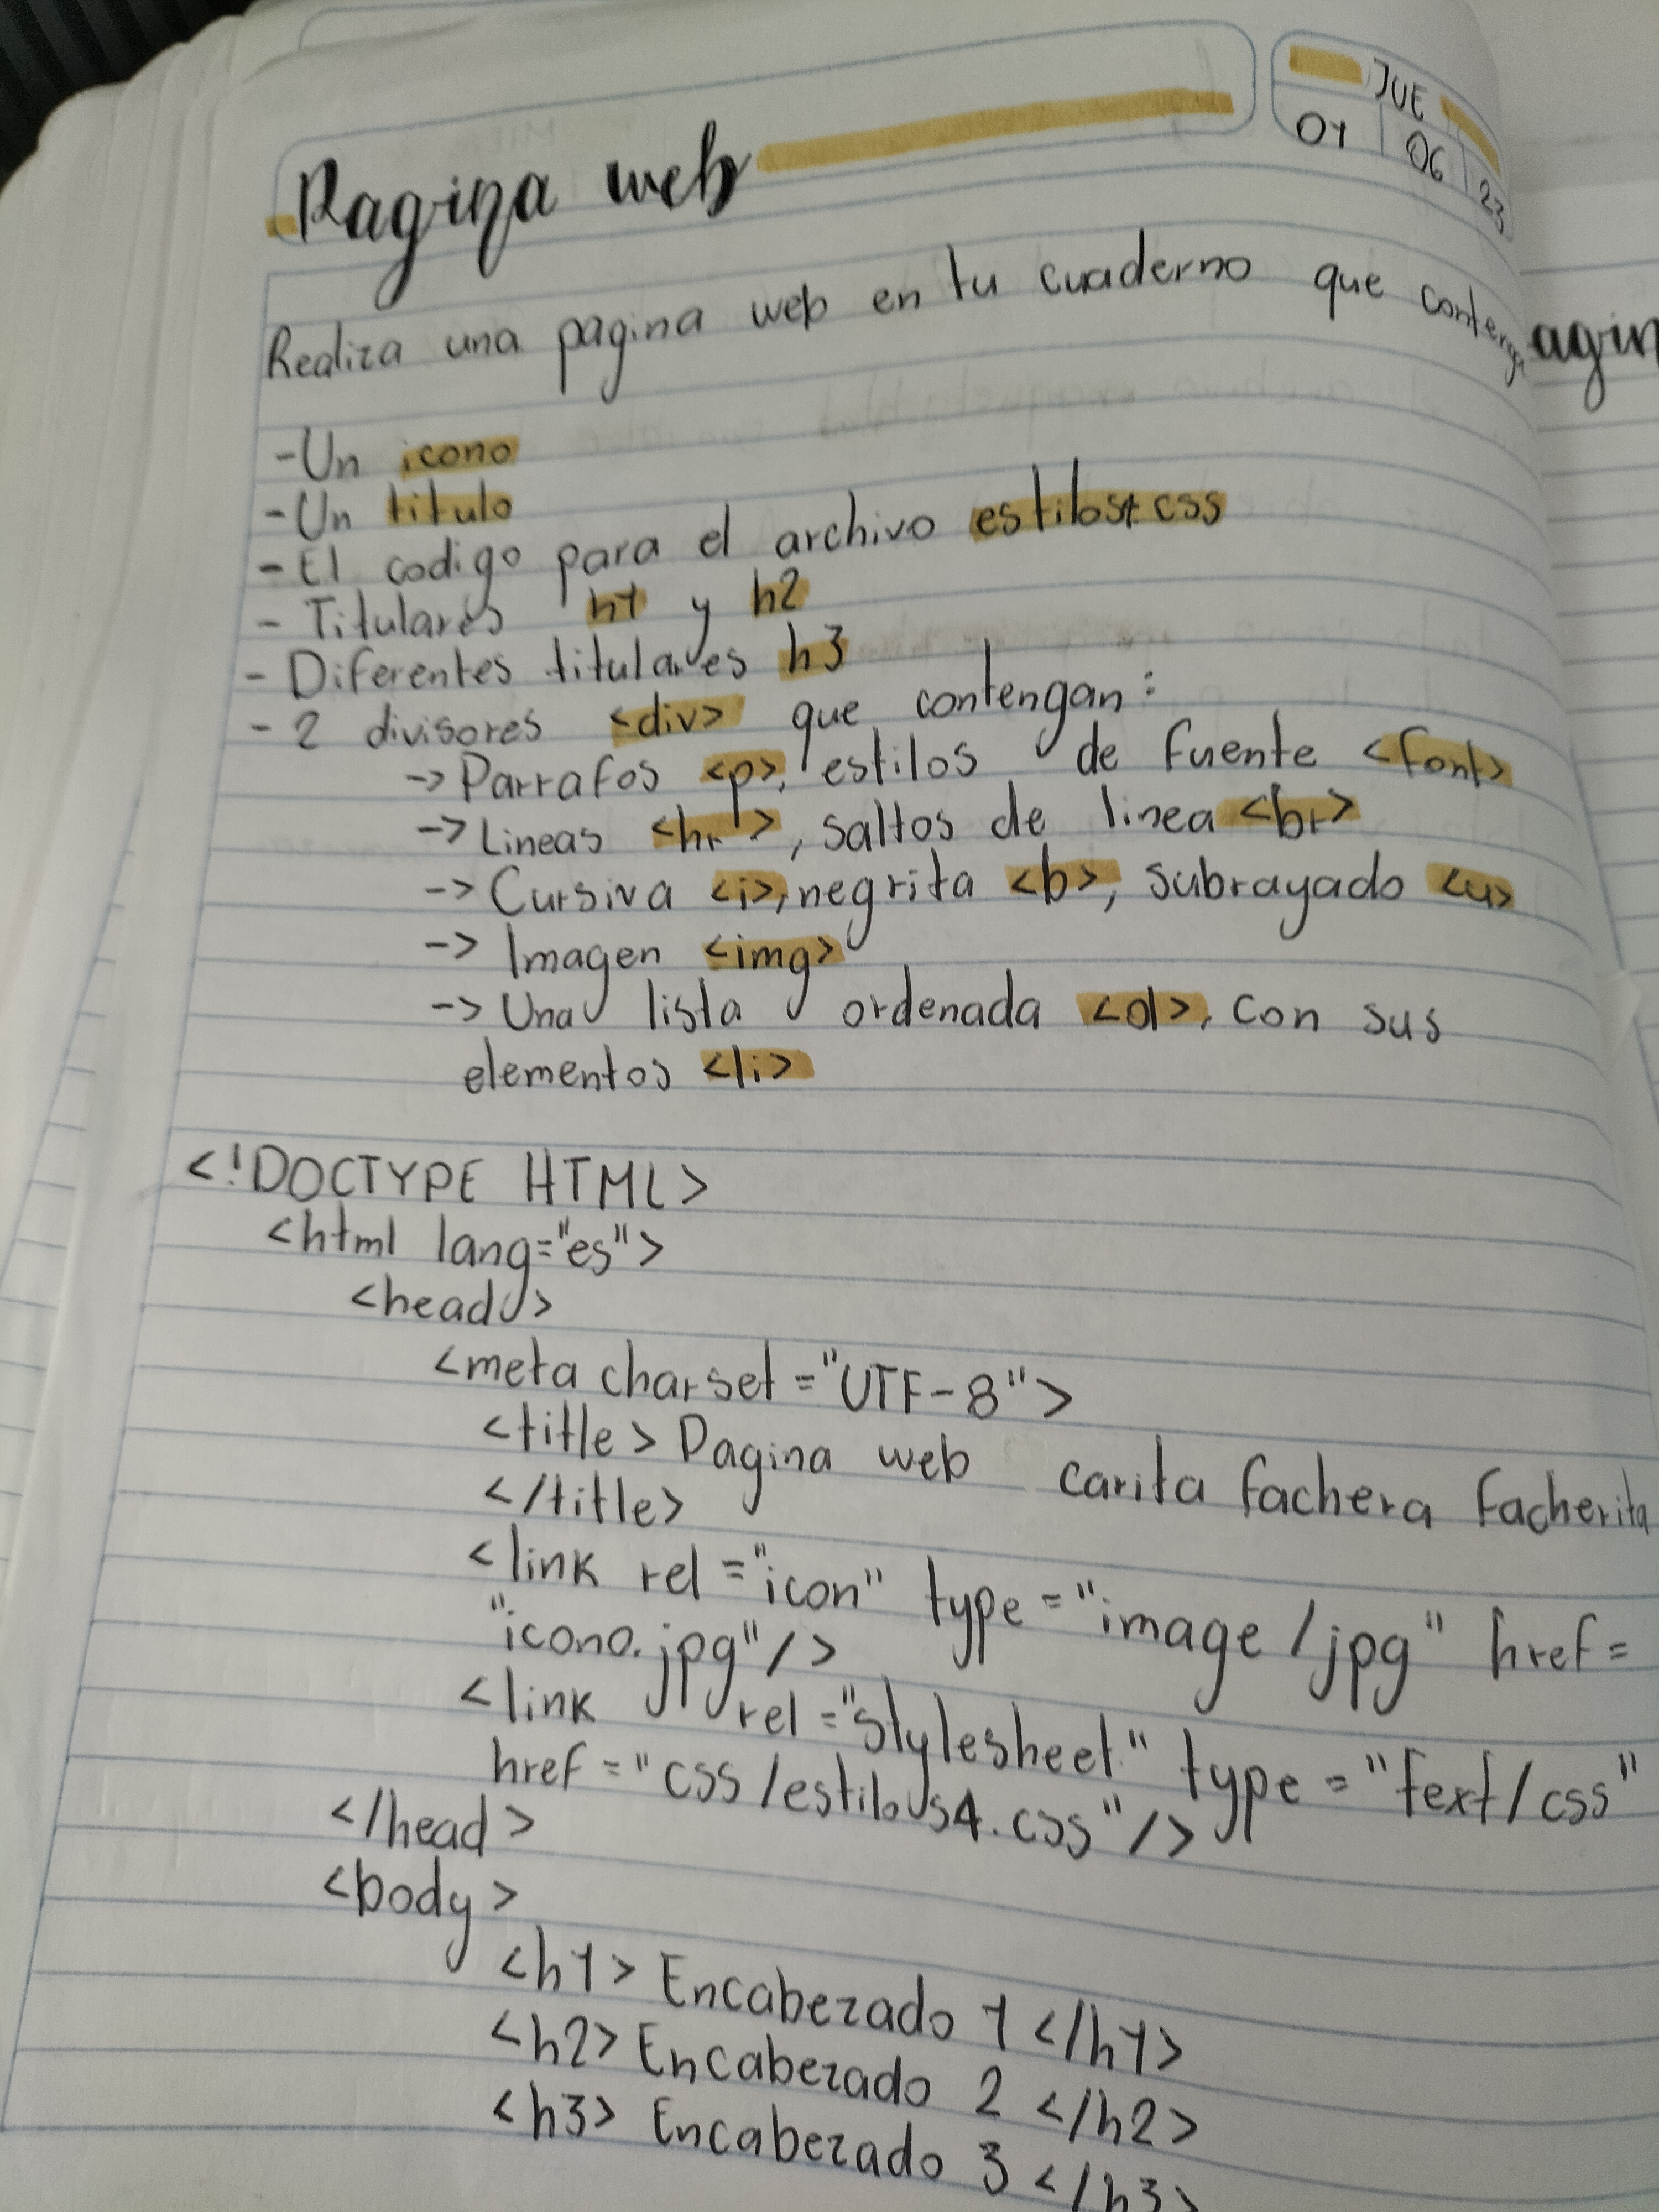 Pagina web
JUE
01 06 23
Realiza una pagina web en tu cuaderno que contenga
agin
-Un icono
-Un titulo
-El codigo para el archivo estilos4 css
- Titulares h1 y h2
- Diferentes titulares h3
- 2 divisores <div> que contengan:
-> Parrafos <p>, estilos de fuente <font>
-> Lineas <hr>, saltos de linea <br>
-> Cursiva <i>, negrita <b>, subrayado <u>
-> Imagen <img>
-> Una lista ordenada <ol>, con sus
elementos <li>
<!DOCTYPE HTML>
<html lang="es">
<head>
<meta charset="UTF-8">
<title> Pagina web carita fachera facherita
</title>
<link rel="icon" type="image/jpg" href=
"icono.jpg"/>
<link rel="stylesheet" type="text/css"
href="css/estilos4.css"/>
</head>
<body>
<h1> Encabezado 1 </h1>
<h2> Encabezado 2 </h2>
<h3> Encabezado 3 </h3>